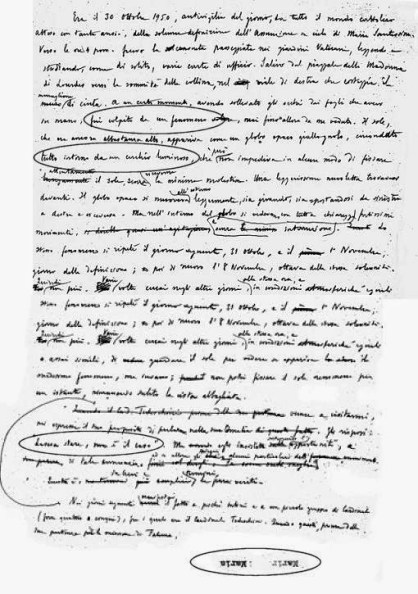 Era il 30 Ottobre 1950, antivigilia del giorno, da tutto il mondo cattolico
atteso con tanta ansia, della solenne definizione dell'Assunzione in cielo di Maria Santissima.
Verso le ore 4 pom. facevo la consueta passeggiata nei giardini Vaticani, leggendo e
studiando, come di solito, varie carte di ufficio. Salivo dal piazzale della Madonna
di Lourdes verso la sommità della collina, nel viale di destra che costeggia il
muraglione di cinta. A un certo momento, avendo sollevato gli occhi dai fogli che avevo
in mano, fui colpito da un fenomeno, mai fino allora da me veduto. Il sole,
che era ancora abbastanza alto, appariva come un globo opaco giallognolo, circondato
tutto intorno da un cerchio luminoso, che però non impediva in alcun modo di fissare
attentamente il sole, senza riceverne la minima molestia. Una leggerissima nuvoletta trovavasi
davanti. Il globo opaco si muoveva all'esterno leggermente, sia girando, sia spostandosi da sinistra
a destra e viceversa. Ma nell'interno del globo si vedevano con tutta chiarezza fortissimi
movimenti, senza interruzione.
stesso fenomeno si ripeté il giorno seguente, 31 Ottobre, e il 1° Novembre,
giorno della definizione; e poi di nuovo l'8 Novembre, ottava della stessa solennità.
Quindi non più. Varie volte cercai negli altri giorni, alla stessa ora, e in condizioni atmosferiche eguali
stesso fenomeno si ripeté il giorno seguente, 31 Ottobre, e il 1° Novembre,
giorno della definizione; e poi di nuovo l'8 Novembre, ottava della stessa solennità.
Quindi non più. Varie volte cercai negli altri giorni, alla stessa ora, e in condizioni atmosferiche eguali
o assai simili, di guardare il sole per vedere se appariva lo stesso
fenomeno, ma invano; non potei fissare il sole nemmeno per
un istante, rimanendo subito la vista abbagliata.
il Card. Tedeschini venne a visitarmi,
mi espresse il suo proposito di parlarne nella sua Omelia. Gli risposi:
lasciare stare, non è il caso. Ma
di tale
Questa è la pura verità.
Nei giorni seguenti il fatto a pochi intimi e a un piccolo gruppo di Cardinali
(forse quattro o cinque), fra i quali era il Cardinal Tedeschini. Quando questi, prima della
sua partenza per la missione di Fatima,
Maria : Maria